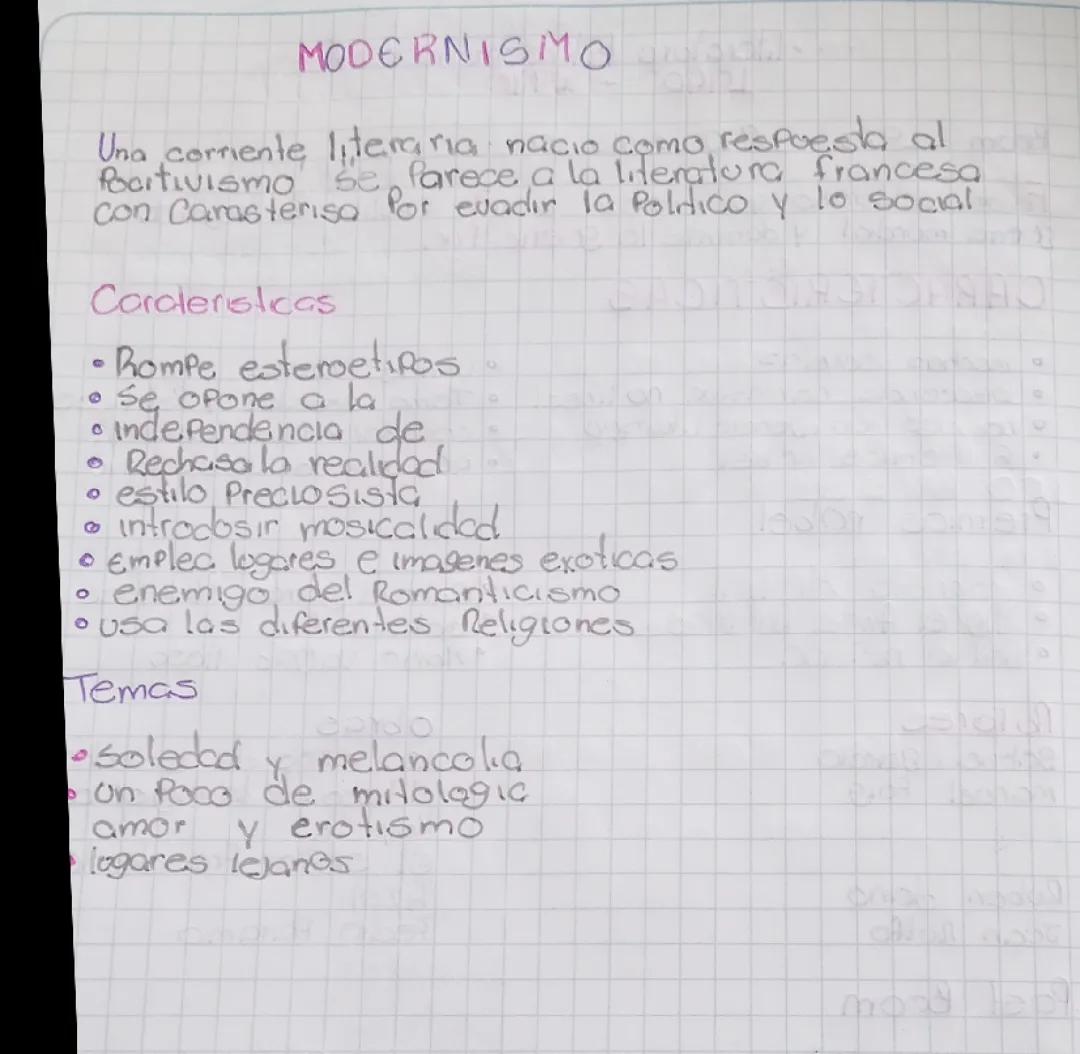 MODERNISMO
Una corriente literaria nacio como respuesta al
Pocitivismo se Parece a la literatura francesa
con Carasterisa Por evadir la Politico y lo social
Carateristicas
• Rompe esteroetipos
• se opone a la
• independencia de
• Rechasa la realidad
• estilo Preciosista
• introdosir mosicalidad
• Emplea logares e imagenes exoticas
• enemigo del Romanticismo
• usa las diferentes Religiones
Temas
• soledad y melancolia
• un Poco de mitologia
amor y erotismo
• logares lejanos